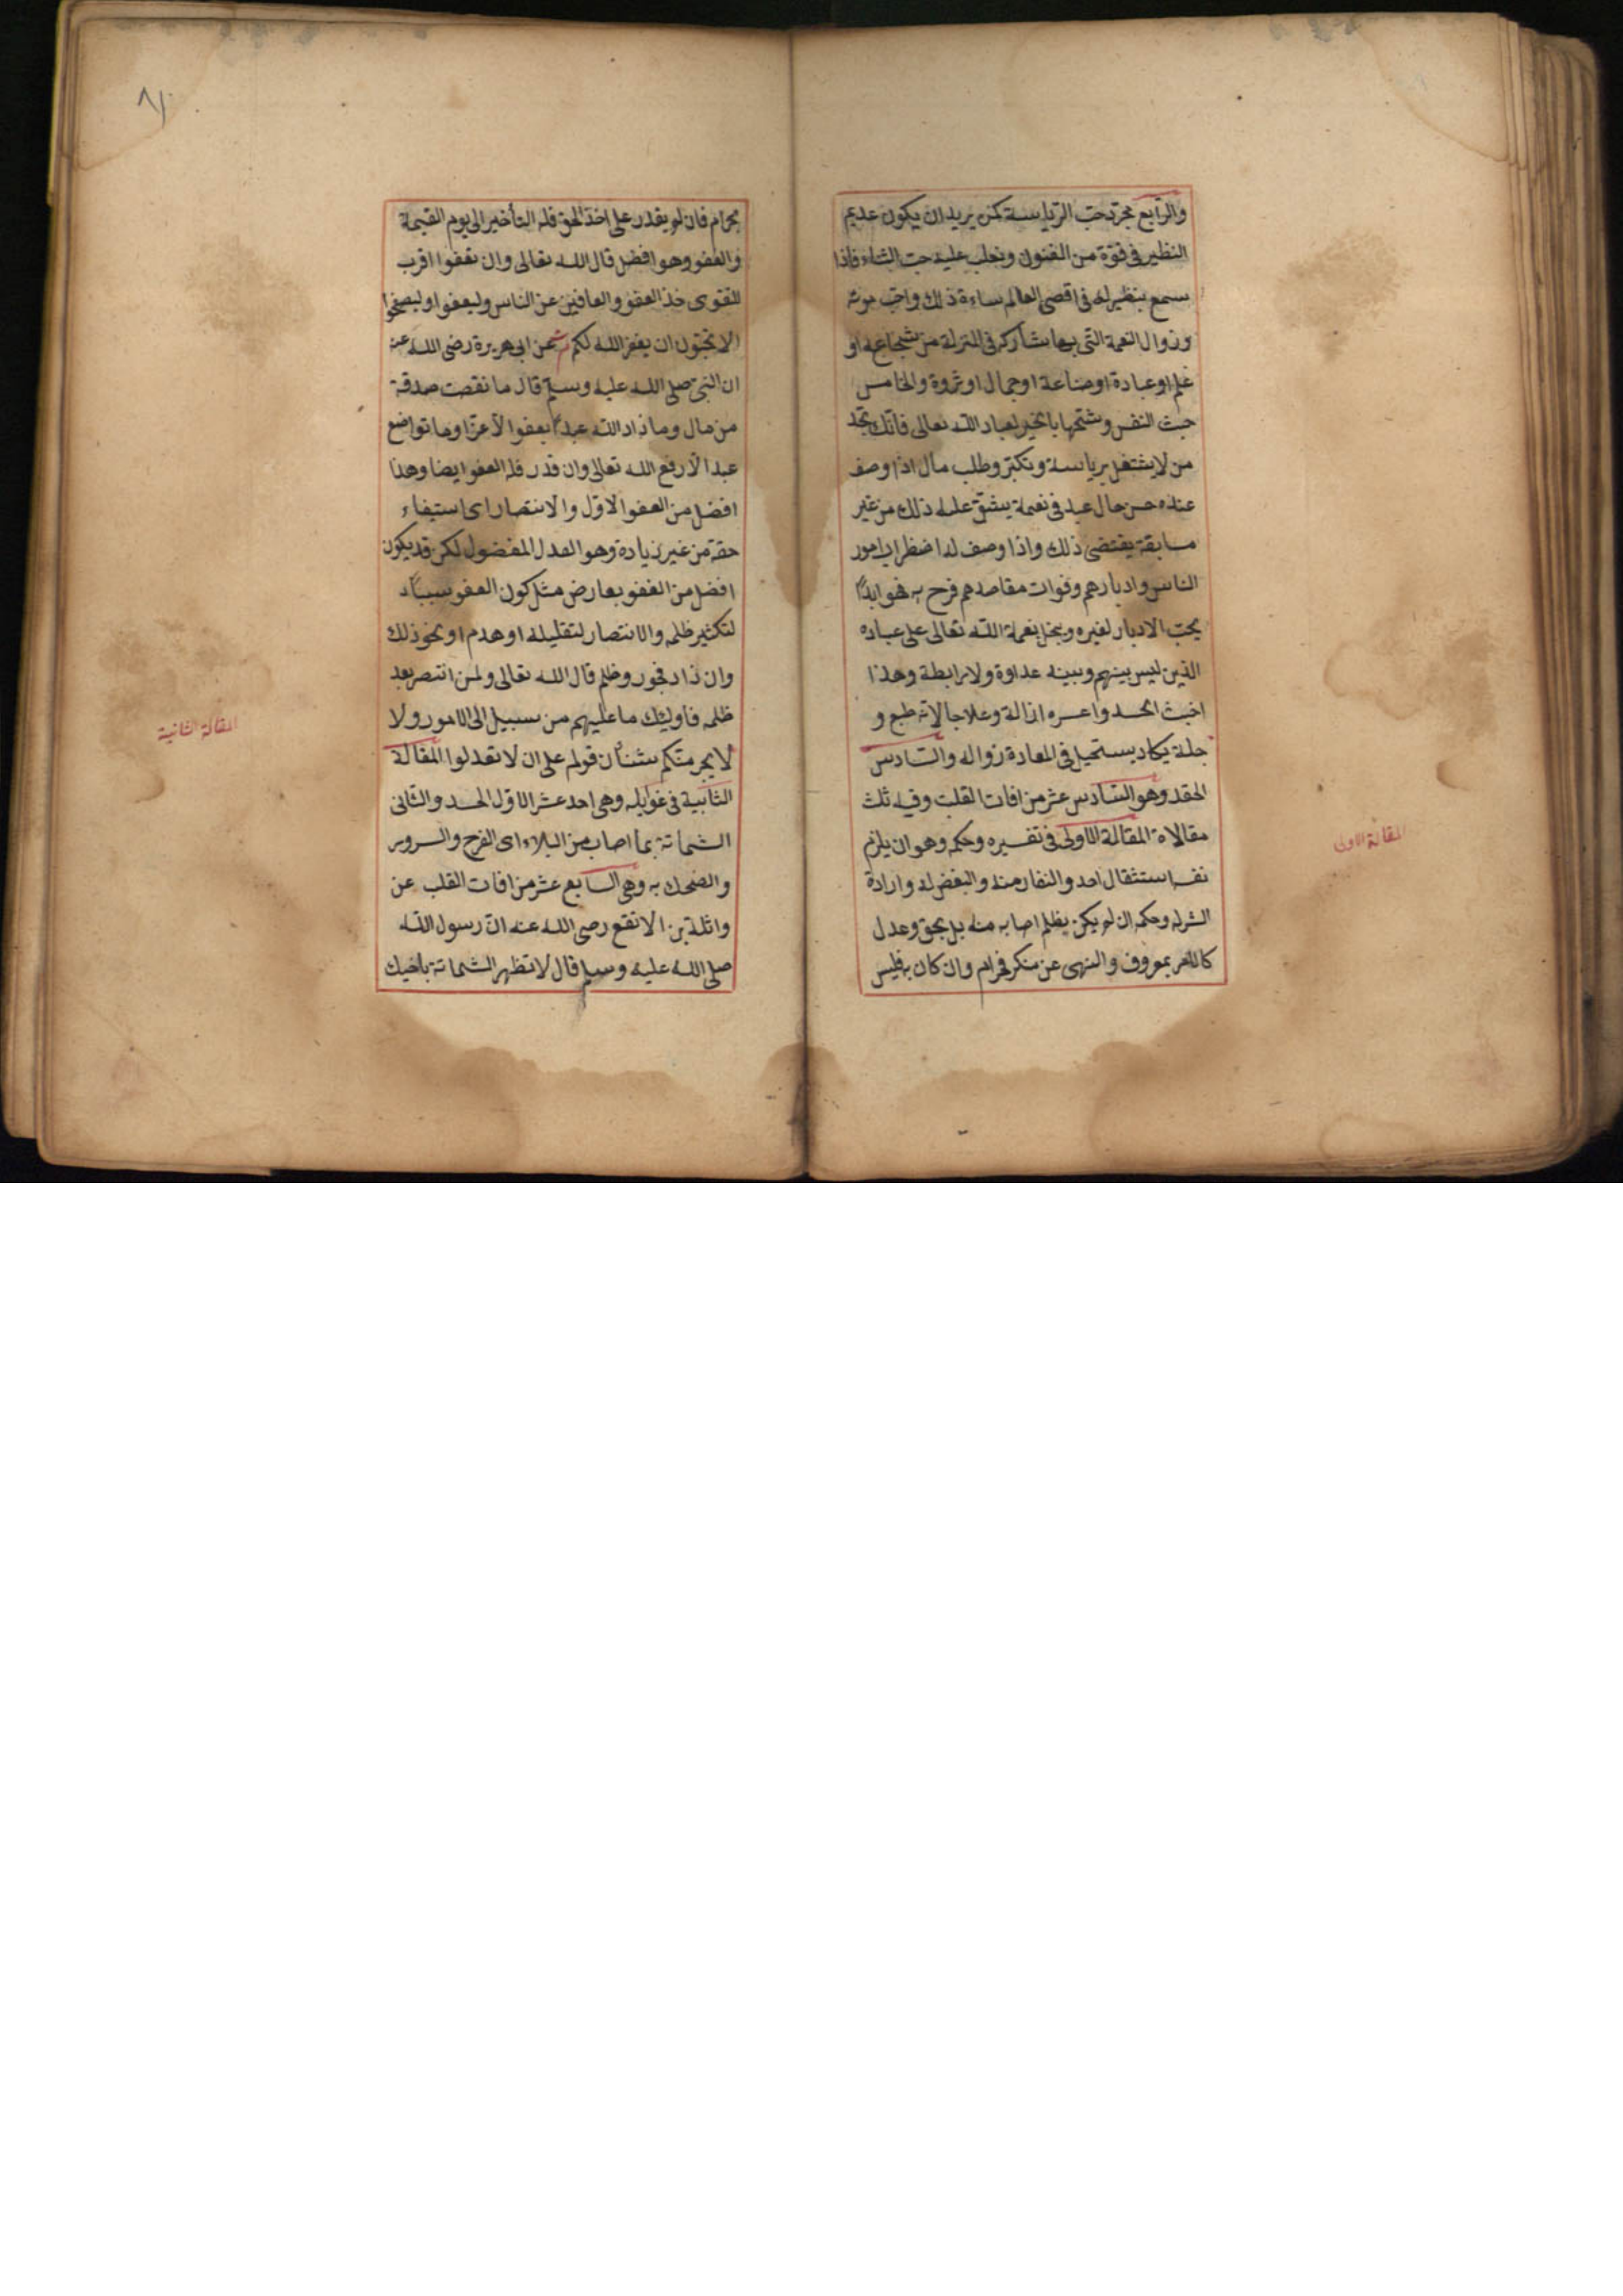 والرابع مجرد حب الرياسة كمن يريد ان يكون عديم
النظير فى قوة من الفنون ويغلب عليه حب الثناء فاذا
سمع بنظير له فى اقصى العالم ساءه ذلك واحب موته
وزوال النعمة التى بها يشاركه فى المنزلة من شجاعة او
علم او عبادة او صناعة او جمال او ثروة والخامس
خبث النفس وشحها بالخير لعباد الله تعالى فانك تجد
من لا يشتغل برياسة وتكبر وطلب مال اذا وصف
عنده حسن حال عبد فى نعمة يشق عليه ذلك من غير
سابقة يقتضى ذلك واذا وصف له اضطراب امور
الناس وادبارهم وفوات مقاصدهم فرح به فهو ابدا
يحب الادبار لغيره ويبخل بنعمة الله تعالى على عباده
الذين ليس بينهم وبينه عداوة ولا رابطة وهذا
اخبث الحسد واعسره ازالة وعلاجا لانه طبع و
جبلة يكاد يستحيل فى العادة زواله والسادس
الحقد وهو السادس عشر من افات القلب وفيه ثلث
مقالاة المقالة الاولى فى تفسيره وحكمه وهو ان يلزم
نفسه استثقال احد والنفار منه والبغض له وارادة
الشر له وحكمه ان لم يكن بظلم اصابه منه بل بحق وعدل
كالامر بمعروف والنهى عن منكر فحرام وان كان به فليس
المقالة الاولى
بحرام فان لم يقدر على اخذ الحق فله التأخير الى يوم القيمة
والعفو وهو افضل قال الله تعالى وان تعفوا اقرب
للتقوى خذ العفو والعافين عن الناس وليعفوا وليصفحوا
الا تحبون ان يغفر الله لكم عن ابى هريرة رضى الله عنه
ان النبى صلى الله عليه وسلم قال ما نقصت صدقة
من مال وما زاد الله عبدا بعفو الا عزا وما تواضع
عبد الا رفع الله تعالى وان قدر فله العفو ايضا وهذا
افضل من العفو الاول والانتصار اى استيفاء
حقه من غير زيادة وهو العدل المفضول لكن قد يكون
افضل من العفو بعارض مثل كون العفو سببا
لتكثير ظلمه والانتصار لتقليله او هدم او نحو ذلك
وان زاد فجور وظلم قال الله تعالى ولمن انتصر بعد
ظلمه فاوليئك ما عليهم من سبيل الى الامور ولا
لا يجر منكم شنأن قوم على ان لا تعدلوا المقالة
الثانية فى غوايله وهى احد عشر الاول الحسد والثانى
الشماتة بما اصاب من البلاء اى الفرح والسرور
والضحك به وهى السابع عشر من افات القلب عن
واثلة بن الاتقع رضى الله عنه ان رسول الله
صلى الله عليه وسلم قال لا تظهر الشماتة باخيك
المقالة الثانية